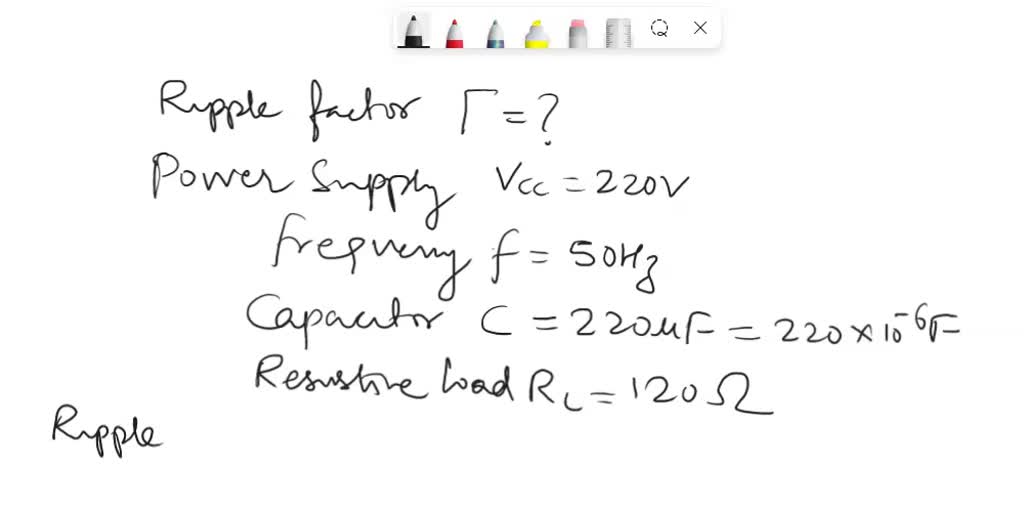 Ripple factor Γ = ?
Power Supply Vcc = 220V
frequency f = 50Hz
Capacitor C = 220μF = 220 × 10⁻⁶F
Resistive load RL = 120Ω
Ripple